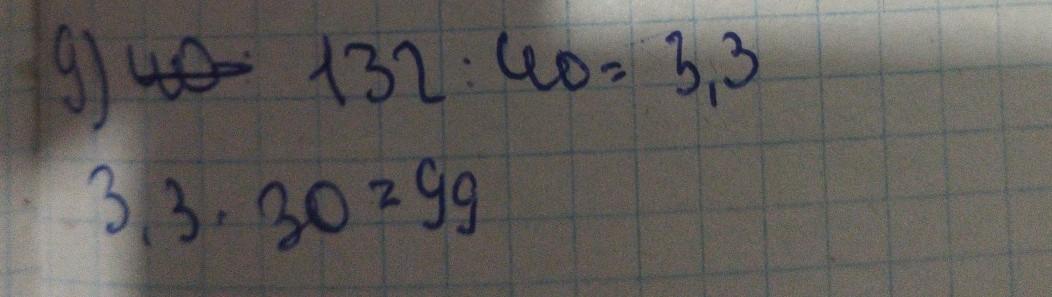 9) 40 132 : 40 = 3,3
3,3 · 30 = 99